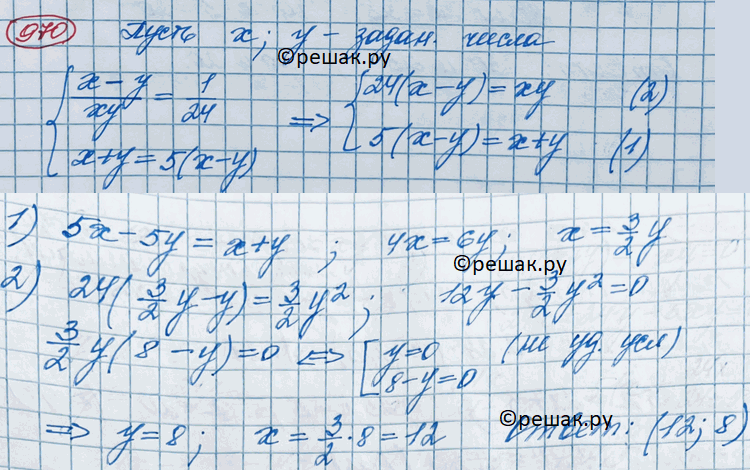 970 Пусть x; y – задан. числа
©решак.ру
{ (x – y)/(xy) = 1/24 ⇒ { 24(x–y) = xy (2)
x+y = 5(x–y) 5(x–y) = x+y (1)
1) 5x – 5y = x+y ; 4x = 6y ; x = 3/2 y
©решак.ру
2) 24(3/2 y – y) = 3/2 y² ; 12y – 3/2 y² = 0
3/2 y(8 – y) = 0 ⇔ [ y = 0 (не уд. усл)
8 – y = 0
©решак.ру
⇒ y = 8 ; x = 3/2 · 8 = 12 Ответ: (12; 8)